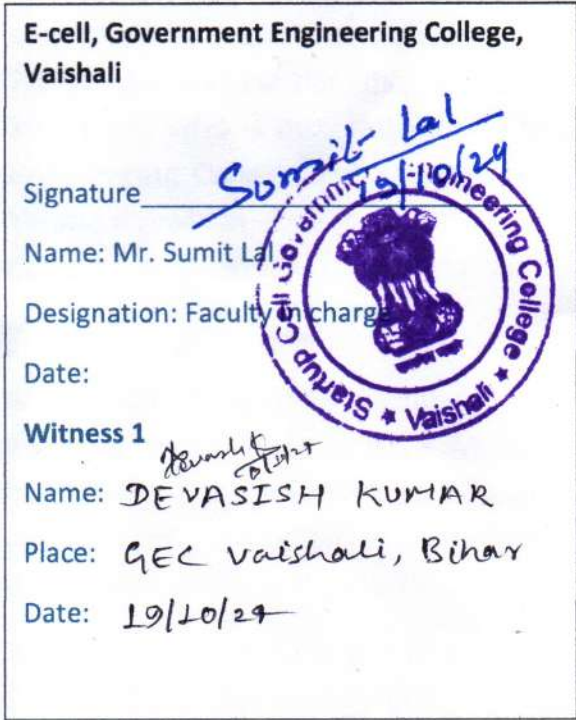 E-cell, Government Engineering College,
Vaishali
Sumit Lal
19/10/24
Signature
Name: Mr. Sumit Lal
Designation: Faculty in charge
Date:
Startup Cell Government Engineering College ★ Vaishali ★
Witness 1
Name: DEVASISH KUMAR
Place: GEC Vaishali, Bihar
Date: 19/10/24